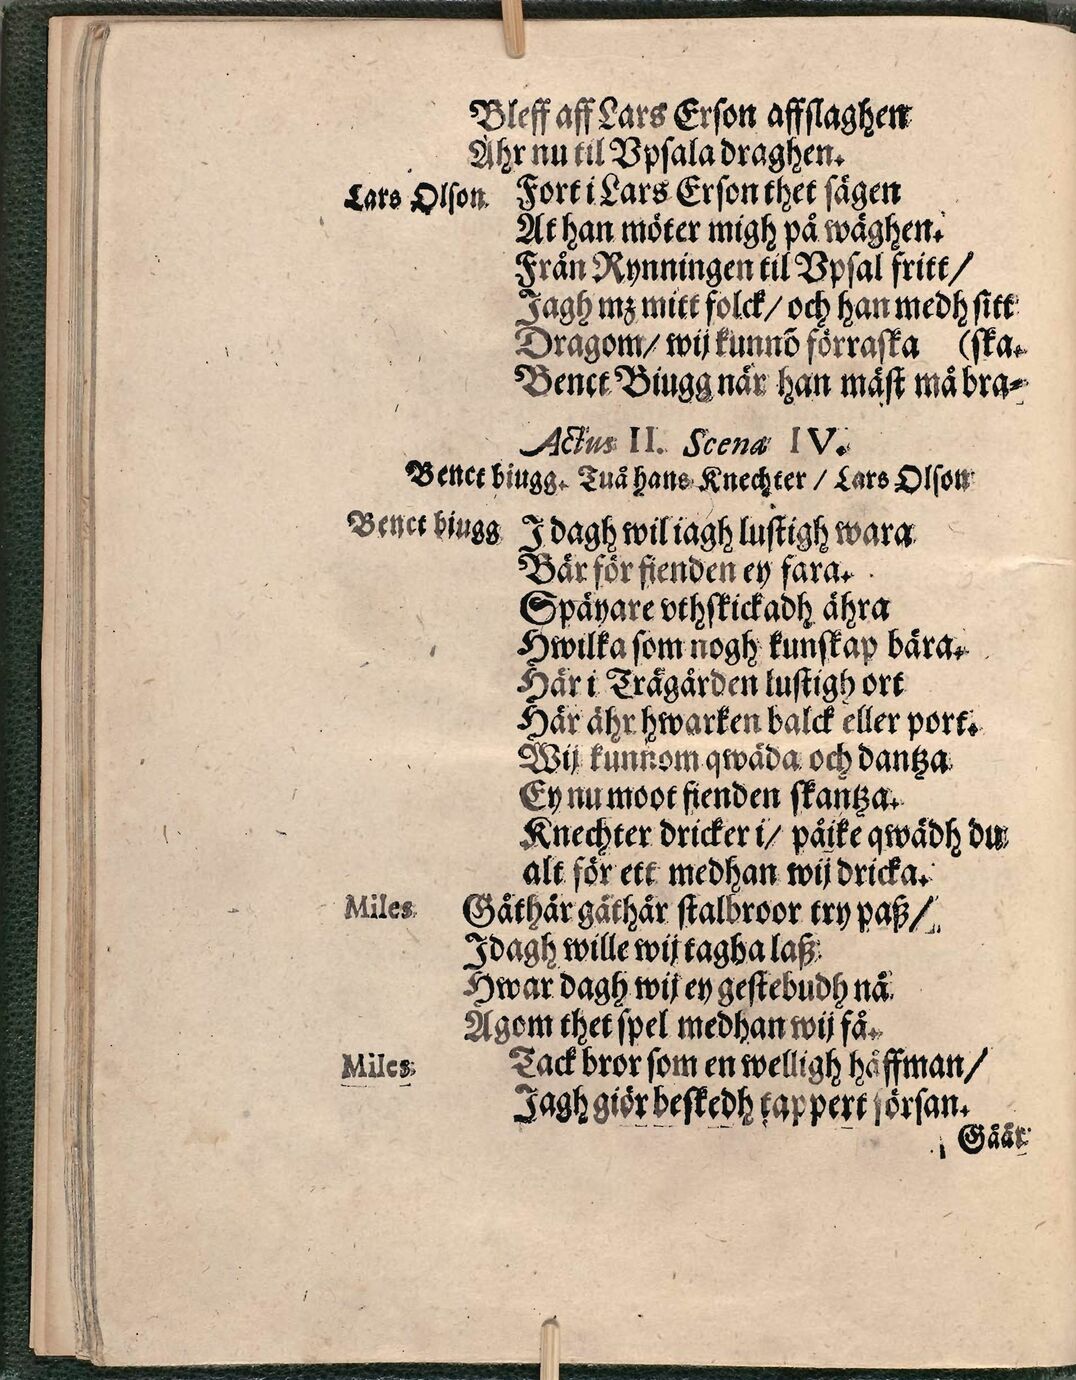 Bleff aff Lars Erson affslaghen
Ähr nu til Vpsala draghen.
Lars Olson. Fort i Lars Erson thet sägen
At han möter migh på wäghen.
Från Rynningen til Vpsal fritt/
Jagh mz mitt folck/ och han medh sitt
Dragom/ wij kunnõ förraska (ska.
Benct Biugg när han mäst må bra-
Actus II. Scena IV.
Benct biugg. Tuå hans Knechter / Lars Olson
Benct biugg J dagh wil iagh lustigh wara
Bär för fienden ey fara.
Späyare vthskickadh ähra
Hwilka som nogh kunskap bära.
Här i Trägården lustigh ort
Här ähr hwarken balck eller port.
Wij kunnom qwäda och dantza
Ey nu moot fienden skantza.
Knechter dricker i/ påike qwädh du
alt för ett medhan wij dricka.
Miles Gåthår gåthår stalbroor try paß/
Jdagh wille wij tagha laß
Hwar dagh wij ey gestebudh nå
Agom thet spel medhan wij få.
Miles Tack bror som en welligh håffman/
Jagh giör beskedh tappert försan.
Gäär